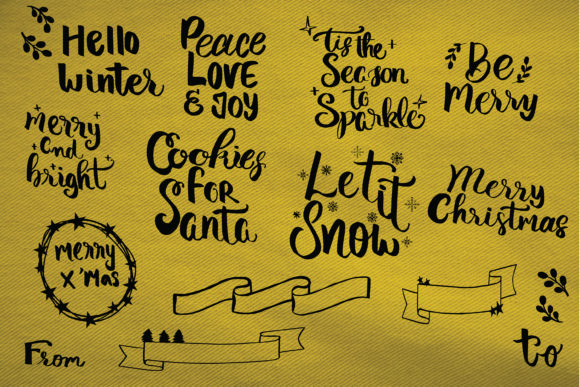 Hello
Winter
Peace
Love
& Joy
tis the
Season
to
Sparkle
Be
Merry
merry
and
bright
Cookies
For
Santa
Let it
Snow
Merry
Christmas
merry
X'Mas
From
to